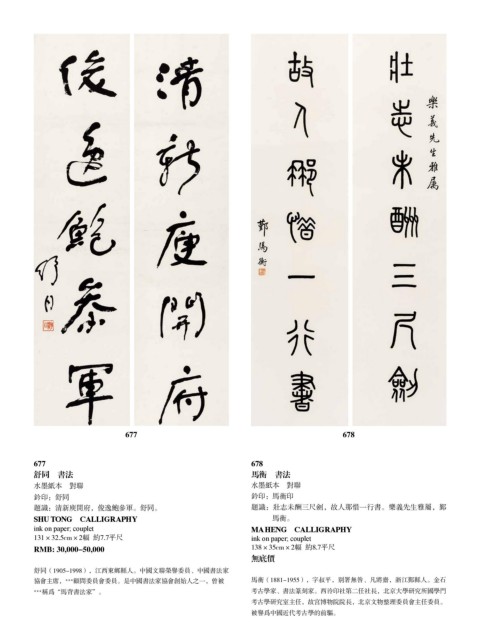 清新庾開府
俊逸鮑參軍
舒同
樂義先生雅屬
壯志未酬三尺劍
故人那惜一行書
鄞馬衡
677
678
677
舒同　書法
水墨紙本　對聯
鈐印：舒同
題識：清新庾開府，俊逸鮑參軍。舒同。
SHU TONG　CALLIGRAPHY
ink on paper; couplet
131 × 32.5cm × 2幅　約7.7平尺
RMB: 30,000-50,000
舒同（1905-1998），江西東鄉縣人。中國文聯榮譽委員、中國書法家
協會主席，***顧問委員會委員。是中國書法家協會創始人之一，曾被
***稱爲“馬背書法家”。
678
馬衡　書法
水墨紙本　對聯
鈐印：馬衡印
題識：壯志未酬三尺劍，故人那惜一行書。樂義先生雅屬，鄞
馬衡。
MA HENG　CALLIGRAPHY
ink on paper; couplet
138 × 35cm × 2幅　約8.7平尺
無底價
馬衡（1881-1955），字叔平，別署無咎、凡將齋，浙江鄞縣人。金石
考古學家、書法篆刻家。西泠印社第二任社長，北京大學研究所國學門
考古學研究室主任，故宮博物院院長，北京文物整理委員會主任委員。
被譽爲中國近代考古學的前驅。